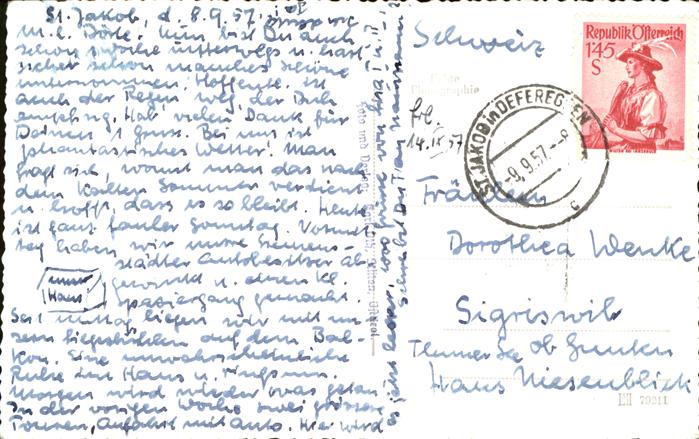 St. Jakob, d. 8.9.57.
M. l. Dörte. Nun bist Du auch
schon 1 Woche unterwegs u. hast
sicher schon manches Schöne
unternommen. Hoffentl. ist
auch der Regen weg, der Dich
empfing. Hab vielen Dank für
Deinen l. Gruss. Bei uns ist
phantastisches Wetter! Man
fragt sich, womit man das nach
dem kalten Sommer verdient
u. hofft, dass es so bleibt. Heute
ist ganz fauler Sonntag. Vormit
tag haben wir unsre Siemens-
städter Autobesitzer ab
gewinkt u. einen kl.
Spaziergang gemacht.
unser
Haus
Seit mittag liegen wir mit un
sern Liegestühlen auf dem Bal-
kon. Eine unwahrscheinliche
Ruhe im Haus u. ringsum.
Morgen wird wieder was getan
In der vorigen Woche zwei grössere
Touren, Anfahrt mit Auto. Hier wird
es jetzt leerer,
Schweiz
Republik Österreich
1.45
S
ST. JAKOB in DEFEREGGEN
-9.9.57.--8
c
14.IX 57
Fräulein
Dorothea Wenke
Sigriswil
Thuner See ob Gunten
Haus Niesenblick
79211